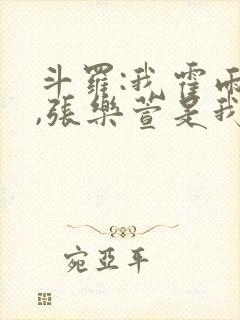 斗羅:我霍雨
,張樂萱是我
宛亞平